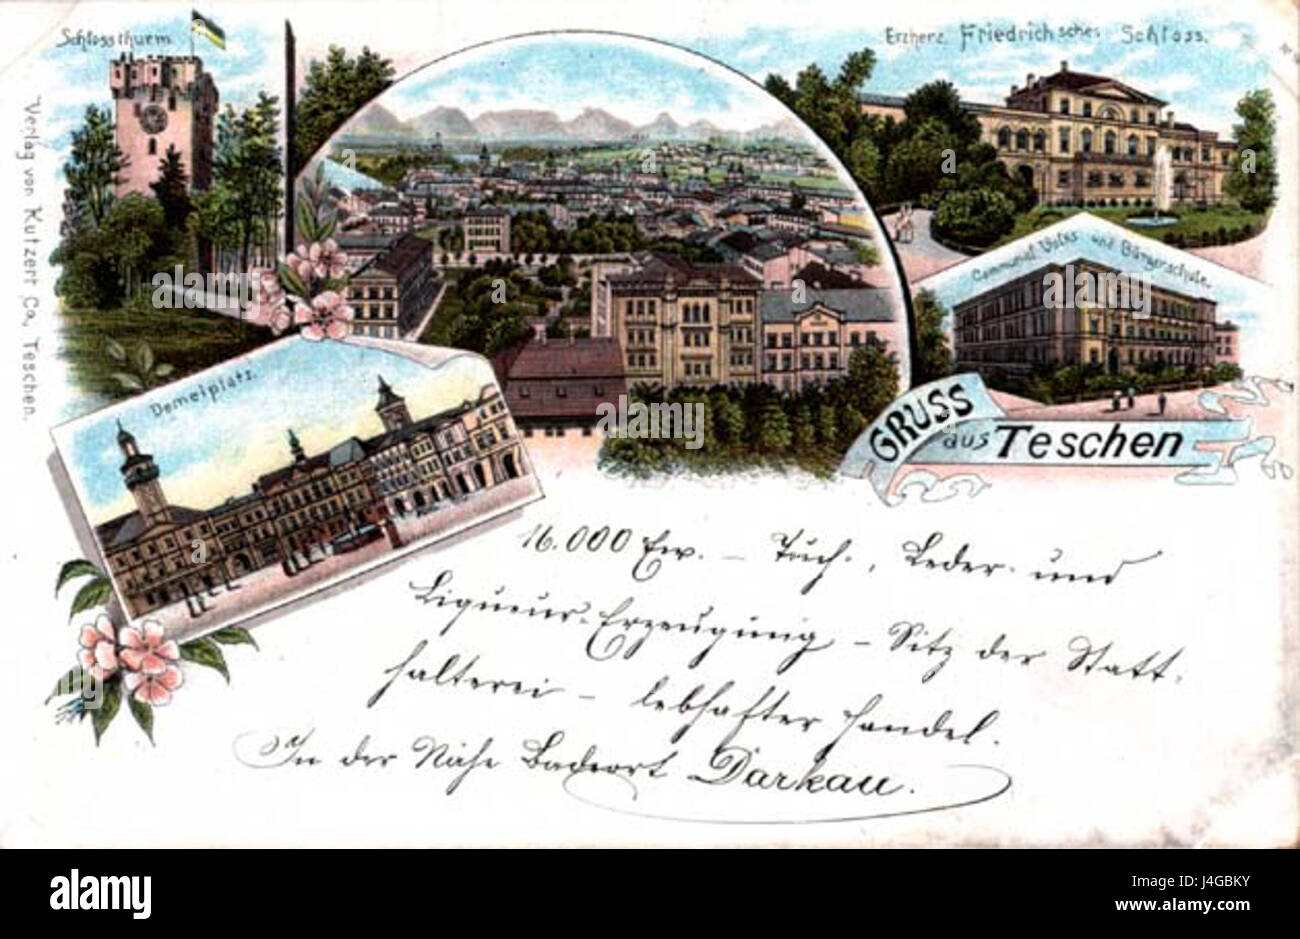 Schlossthurm
Erzherz. Friedrichsches Schloss.
Verlag von Kutzert Co, Teschen.
Communal Volks und Bürgerschule.
Demelplatz.
GRUSS
aus Teschen
16.000 Ew. – Tuch-, Leder- und
Liqueur-Erzeugung – Sitz der Statt-
halterei – lebhafter Handel.
In der Nähe Badeort Darkau.
alamy
alamy
Image ID: J4GBKY
www.alamy.com